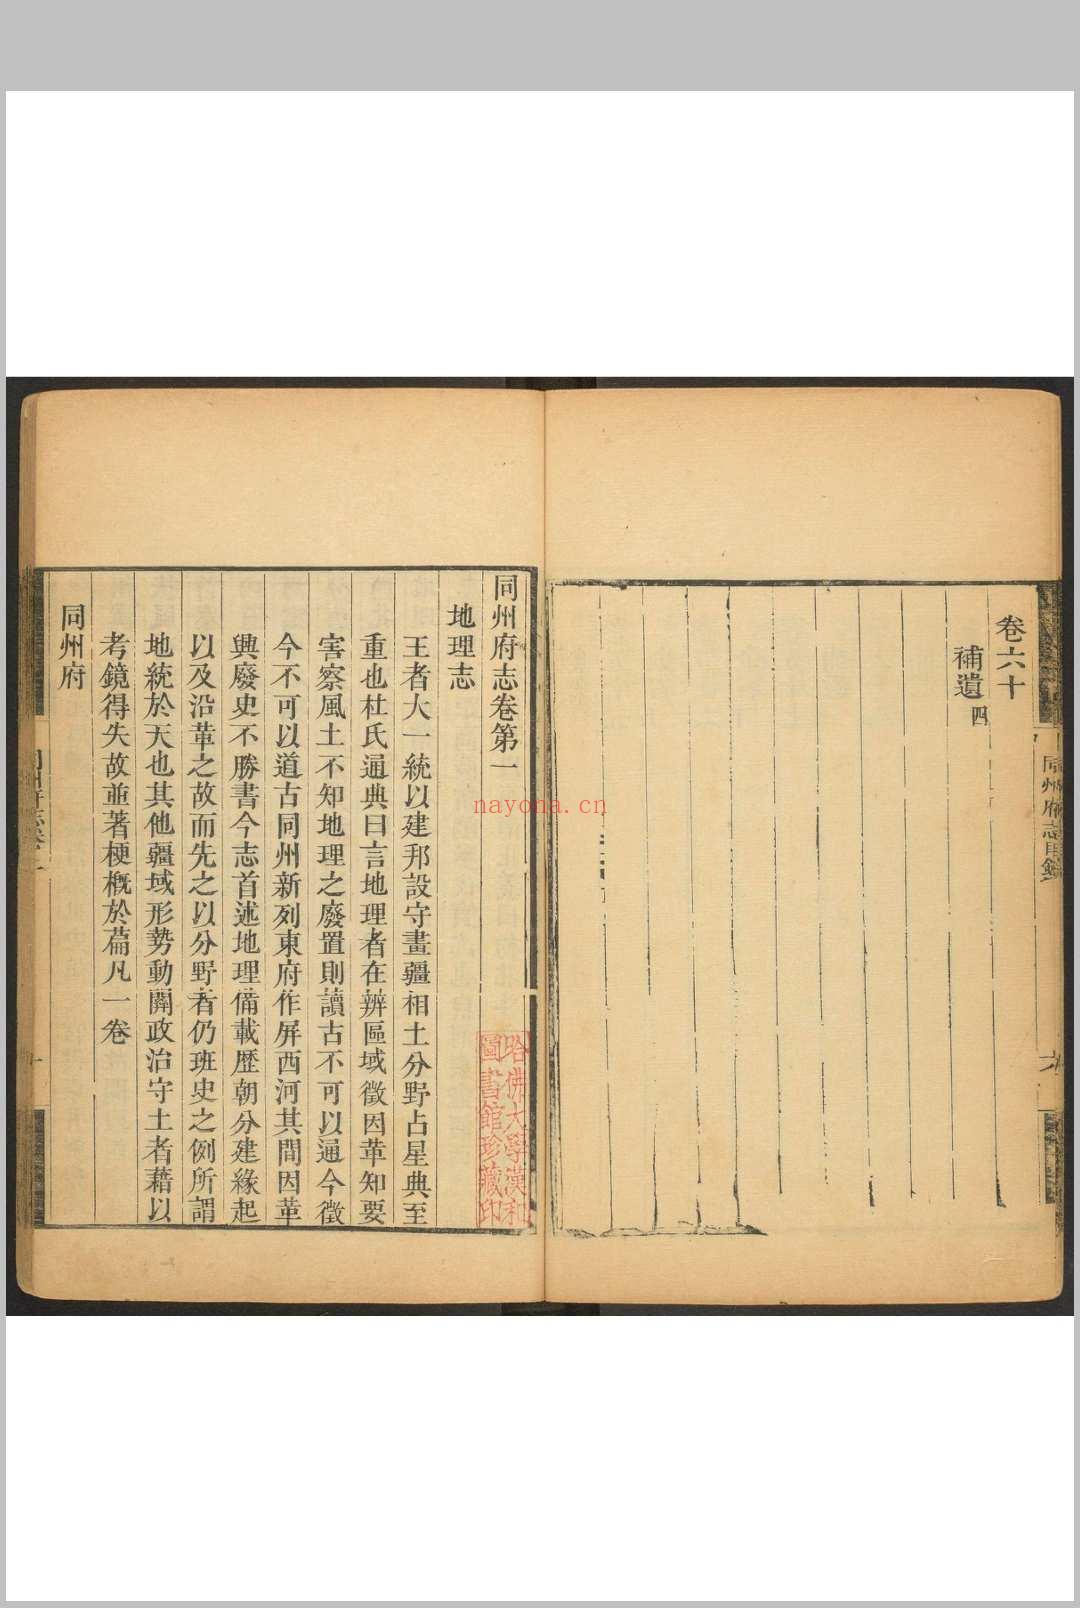 卷六十
補遺四
同州府志目錄
同州府志卷第一
地理志
王者大一統以建邦設守畫疆相土分野占星典至
重也杜氏通典曰言地理者在辨區域徵因革知要
害察風土不知地理之廢置則讀古不可以通今徵
今不可以道古同州新列東府作屏西河其間因革
興廢史不勝書今志首述地理備載歷朝分建緣起
以及沿革之故而先之以分野者仍班史之例所謂
地統於天也其他疆域形勢動關政治守土者藉以
考鏡得失故並著梗概於萹凡一卷
同州府
同州府志卷一
一
哈佛大學漢和
圖書館珍藏印
nayona.cn